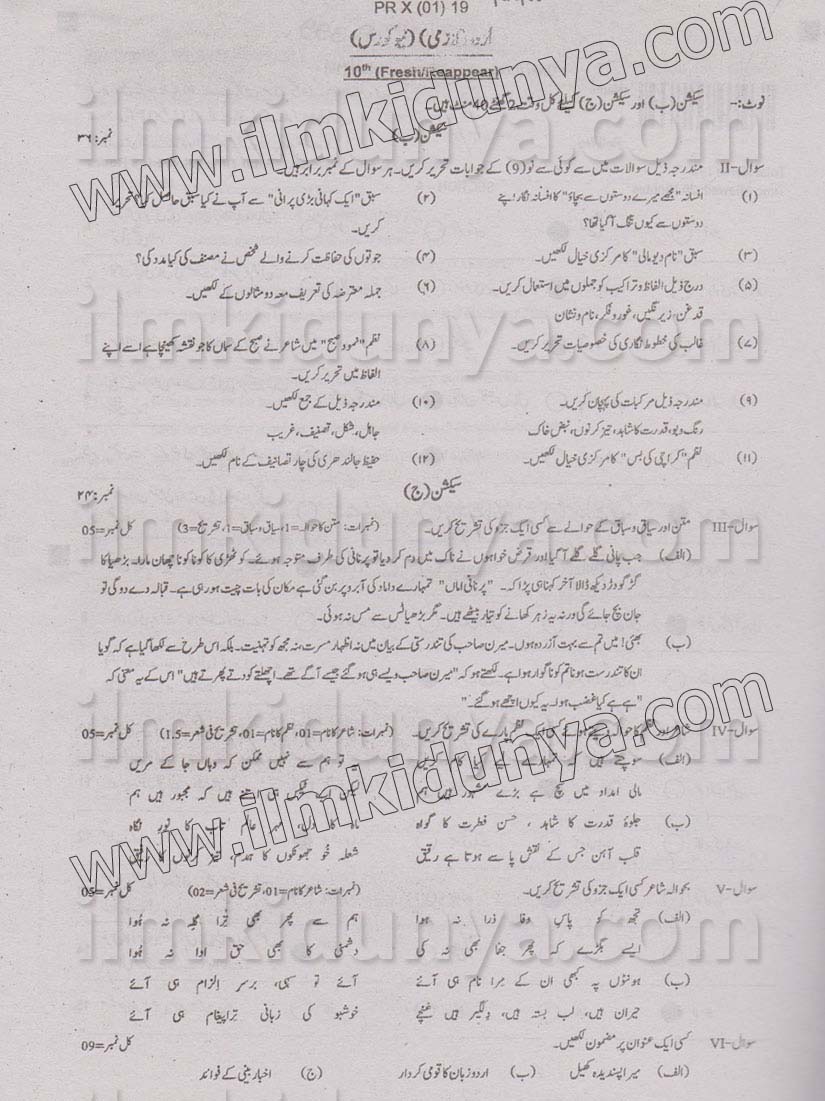 PR X (01) 19
اردو (لازمی) (نیو کورس)
10th (Fresh/Reappear)
نوٹ:- سیکشن (ب) اور سیکشن (ج) کیلئے کل وقت 2 گھنٹے 40 منٹ ہیں۔
سیکشن (ب) نمبر: ۳۶
سوال-II مندرجہ ذیل سوالات میں سے کوئی سے نو (9) کے جوابات تحریر کریں۔ ہر سوال کے نمبر برابر ہیں۔
(۱) افسانہ "مجھے میرے دوستوں سے بچاؤ" کا افسانہ نگار اپنے دوستوں سے کیوں تنگ آ گیا تھا؟
(۲) سبق "ایک کہانی بڑی پرانی" سے آپ نے کیا سبق حاصل کیا؟ تحریر کریں۔
(۳) سبق "نام دیو مالی" کا مرکزی خیال لکھیں۔
(۴) جوتوں کی حفاظت کرنے والے شخص نے مصنف کی کیا مدد کی؟
(۵) درج ذیل الفاظ و تراکیب کو جملوں میں استعمال کریں۔
قدغن، زیر نگیں، غور و فکر، نام و نشان
(۶) جملہ معترضہ کی تعریف معہ دو مثالوں کے لکھیں۔
(۷) غالب کی خطوط نگاری کی خصوصیات تحریر کریں۔
(۸) نظم "نمود صبح" میں شاعر نے صبح کے سماں کا جو نقشہ کھینچا ہے اسے اپنے الفاظ میں تحریر کریں۔
(۹) مندرجہ ذیل مرکبات کی پہچان کریں۔
رنگ و بو، قدرت کا شاہد، تیز کرنوں، نبض خاک
(۱۰) مندرجہ ذیل کے جمع لکھیں۔
جاہل، شکل، تصنیف، غریب
(۱۱) نظم "کراچی کی بس" کا مرکزی خیال لکھیں۔
(۱۲) حفیظ جالندھری کی چار تصانیف کے نام لکھیں۔
سیکشن (ج) نمبر: ۲۴
سوال-III متن اور سیاق و سباق کے حوالے سے کسی ایک جزو کی تشریح کریں۔ (نمبرات: متن کا حوالہ=1، سیاق و سباق=1، تشریح=3) کل نمبر=05
(الف) جب پانی گلے گلے آ گیا اور قرض خواہوں نے ناک میں دم کر دیا تو پر نانی کی طرف متوجہ ہوئے۔ کوٹھڑی کا کونا کونا چھان مارا۔ بڑھیا کا
گڑ گودڑ دیکھ ڈالا آخر کہنا ہی پڑا کہ۔ "پر نانی اماں" تمہارے داماد کی آبرو پر بن گئی ہے مکان کی بات چیت ہو رہی ہے۔ قبالہ دے دو گی تو
جان بچ جائے گی ورنہ یہ زہر کھانے کو تیار بیٹھے ہیں۔ مگر بڑھیا ٹس سے مس نہ ہوئی۔
(ب) بھئی! میں تم سے بہت آزردہ ہوں۔ میرن صاحب کی تندرستی کے بیان میں نہ اظہار مسرت، نہ مجھ کو تہنیت۔ بلکہ اس طرح سے لکھا گیا ہے کہ گویا
ان کا تندرست ہونا تم کو ناگوار ہوا ہے۔ لکھتے ہو کہ "میرن صاحب ویسے ہی ہو گئے جیسے آگے تھے۔ اچھلتے کودتے پھرتے ہیں" اس کے یہ معنی کہ
"ہے ہے کیا غضب ہوا۔ یہ کیوں اچھے ہو گئے۔"
سوال-IV شاعر اور نظم کا حوالہ دیتے ہوئے کسی ایک نظم پارے کی تشریح کریں۔ (نمبرات: شاعر کا نام=01، نظم کا نام=01، تشریح فی شعر=1.5) کل نمبر=05
(الف) سوچتے ہیں کہ تمہارے لئے کیا کام کریں یہ تو ہم سے نہیں ممکن کہ وہاں جا کے مریں
مالی امداد میں سچ ہے بڑے مشہور ہیں ہم لیکن ہیں کہ مجبور ہیں ہم
(ب) جلوۂ قدرت کا شاہد، حسن فطرت کا گواہ ماہ کا دل، مہر عالم تاب کا نور نگاہ
قلب آہن جس کے نقش پا سے ہوتا ہے رقیق شعلہ خُو جھونکوں کا ہمدم، تیز کرنوں کا رفیق
سوال-V بحوالہ شاعر کسی ایک جزو کی تشریح کریں۔ (نمبرات: شاعر کا نام=01، تشریح فی شعر=02) کل نمبر=05
(الف) تجھ کو پاسِ وفا ذرا نہ ہوا ہم سے پھر بھی ترا گلہ نہ ہُوا
ایسے بگڑے کہ پھر جفا بھی نہ کی دشمنی کا بھی حق ادا نہ ہُوا
(ب) ہونٹوں پہ کبھی ان کے مِرا نام ہی آئے آئے تو سہی، برسرِ الزام ہی آئے
حیران ہیں، لب بستہ ہیں، دِلگیر ہیں غنچے خوشبو کی زبانی ترا پیغام ہی آئے
سوال-VI کسی ایک عنوان پر مضمون لکھیں۔ کل نمبر=09
(الف) میرا پسندیدہ کھیل (ب) اردو زبان کا قومی کردار (ج) اخبار بینی کے فوائد
www.ilmkidunya.com
www.ilmkidunya.com
ilmkidunya.com
ilmkidunya.com
ilmkidunya.com
ilmkidunya.com
ilmkidunya.com